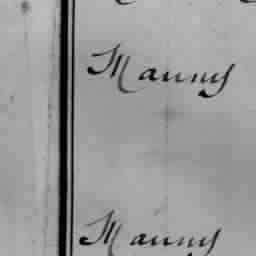 Manny
Manny